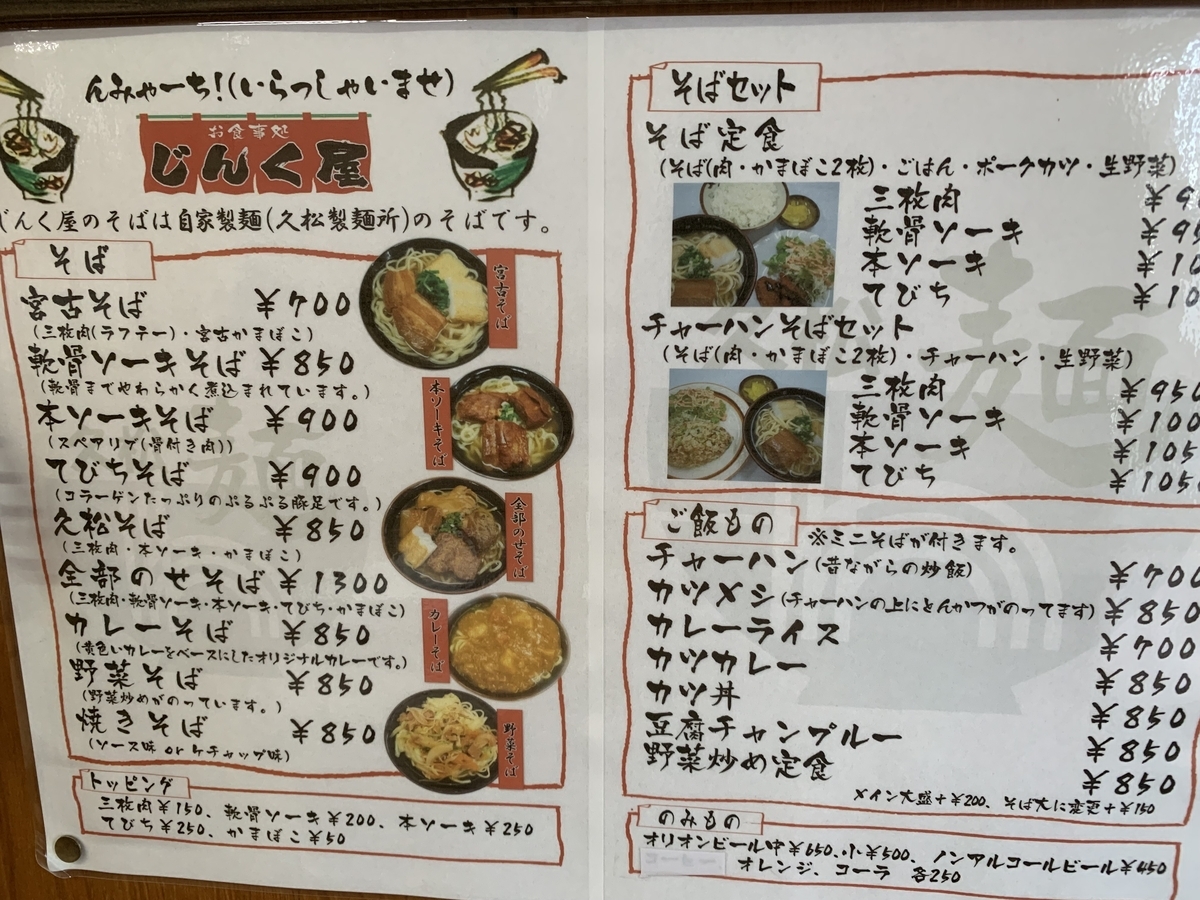 んみゃーち!(いらっしゃいませ)
お食事処
じんく屋
じんく屋のそばは自家製麺(久松製麺所)のそばです。
そば
宮古そば ¥700
(三枚肉(ラフテー)・宮古かまぼこ)
軟骨ソーキそば ¥850
(軟骨までやわらかく煮込まれています。)
本ソーキそば ¥900
(スペアリブ(骨付き肉))
てびちそば ¥900
(コラーゲンたっぷりのぷるぷる豚足です。)
久松そば ¥850
(三枚肉・本ソーキ・かまぼこ)
全部のせそば ¥1300
(三枚肉・軟骨ソーキ・本ソーキ・てびち・かまぼこ)
カレーそば ¥850
(黄色いカレーをベースにしたオリジナルカレーです。)
野菜そば ¥850
(野菜炒めがのっています。)
焼きそば ¥850
(ソース味 or ケチャップ味)
宮古そば
本ソーキそば
全部のせそば
カレーそば
野菜そば
トッピング
三枚肉¥150、軟骨ソーキ¥200、本ソーキ¥250
てびち¥250、かまぼこ¥50
そばセット
そば定食
(そば(肉・かまぼこ2枚)・ごはん・ポークカツ・生野菜)
三枚肉
軟骨ソーキ
本ソーキ
てびち
チャーハンそばセット
(そば(肉・かまぼこ2枚)・チャーハン・生野菜)
三枚肉 ¥950
軟骨ソーキ
本ソーキ
てびち
麺
ご飯もの
※ミニそばが付きます。
チャーハン(昔ながらの炒飯) ¥700
カツメシ(チャーハンの上にとんかつがのってます) ¥850
カレーライス ¥700
カツカレー ¥850
カツ丼 ¥850
豆腐チャンプルー ¥850
野菜炒め定食 ¥850
メイン大盛+¥200、そば大に変更+¥150
のみもの
オリオンビール中¥650、小¥500、ノンアルコールビール¥450
オレンジ、コーラ 各250